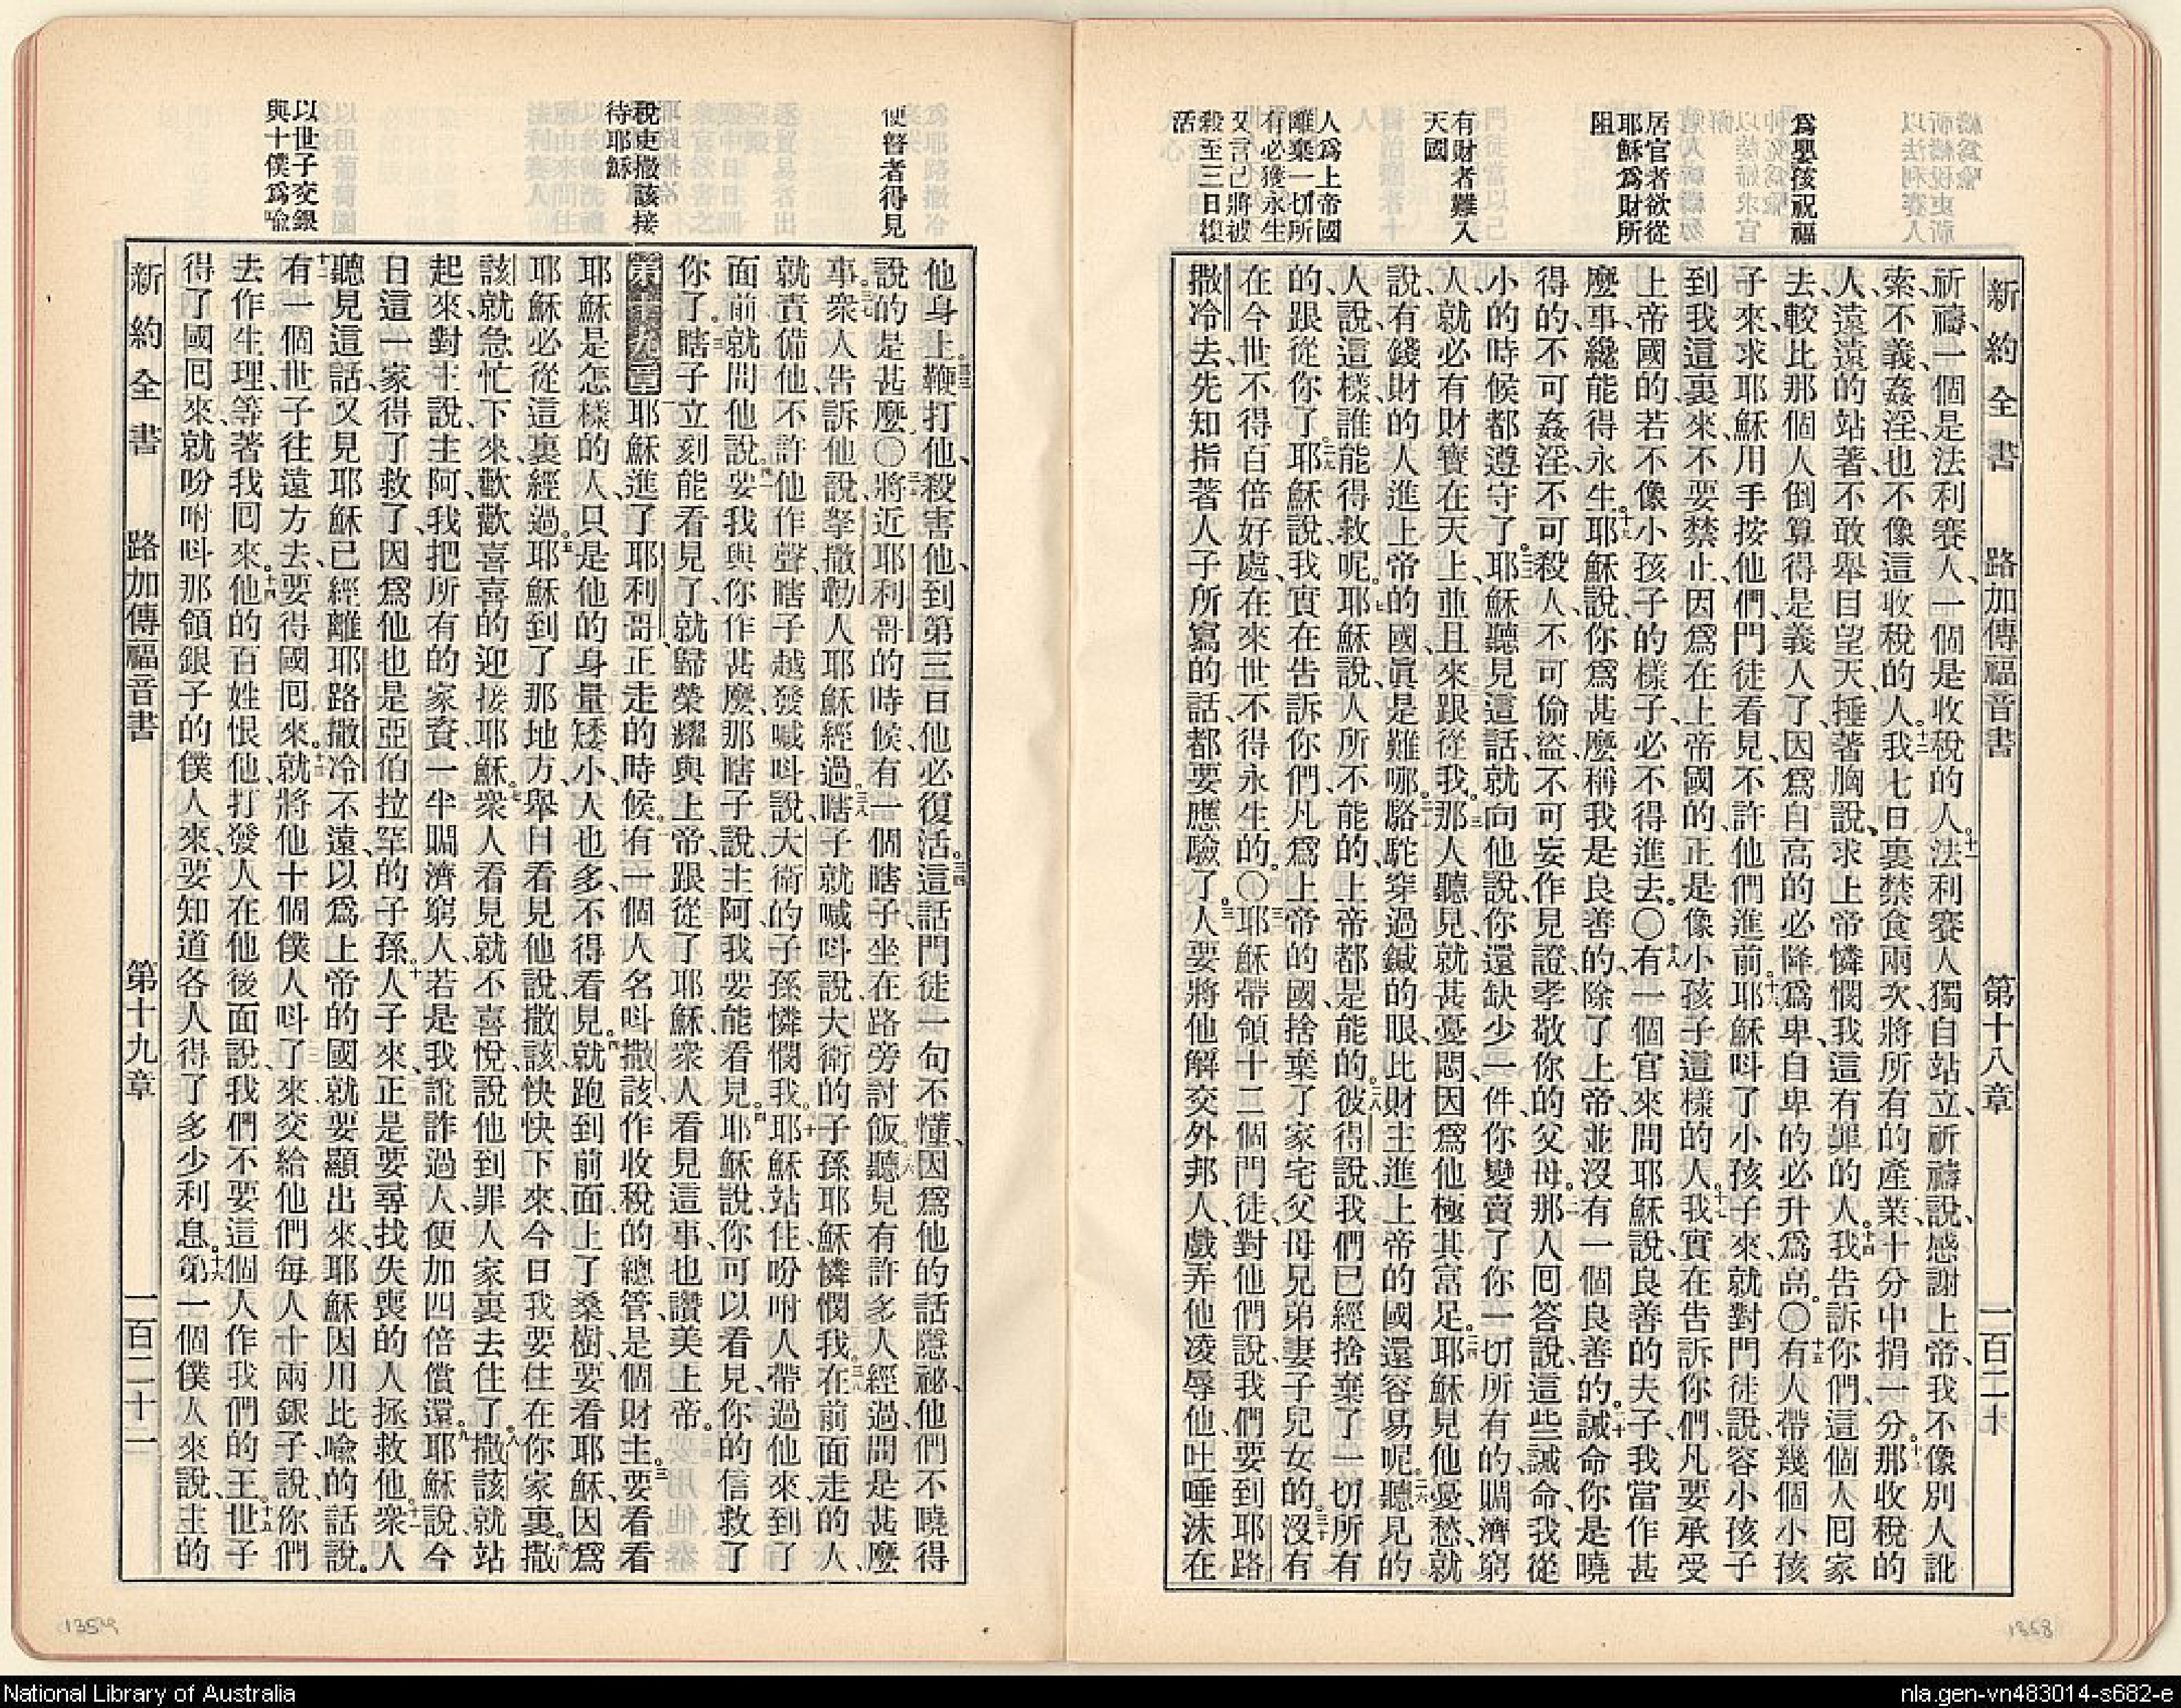 新約全書 路加傳福音書 第十八章 一百二十
爲嬰孩祝福
居官者欲從
耶穌爲財所
阻
有財者難入
天國
人爲上帝國
離棄一切所
有必獲永生
又言己將被
殺至三日復
活
祈禱、一個是法利賽人、一個是收稅的人。十一法利賽人獨自站立、祈禱說、感謝上帝、我不像別人訛
索、不義、姦淫、也不像這收稅的人。十二我七日裏禁食兩次、將所有的產業、十分中捐一分。十三那收稅的
人、遠遠的站著、不敢舉目望天、捶著胸說、求上帝憐憫我這有罪的人。十四我告訴你們、這個人囘家
去、較比那個人倒算得是義人了、因爲自高的必降爲卑、自卑的必升爲高。〇十五有人帶幾個小孩
子來、求耶穌用手按他們、門徒看見不許他們進前。十六耶穌呌了小孩子來、就對門徒說、容小孩子
到我這裏來、不要禁止、因爲在上帝國的、正是像小孩子這樣的人。十七我實在告訴你們、凡要承受
上帝國的、若不像小孩子的樣子、必不得進去。〇十八有一個官來問耶穌說、良善的夫子、我當作甚
麼事、纔能得永生。十九耶穌說、你爲甚麼稱我是良善的、除了上帝、並沒有一個良善的。二十誡命、你是曉
得的、不可姦淫、不可殺人、不可偷盜、不可妄作見證、孝敬你的父母。二一那人囘答說、這些誡命、我從
小的時候都遵守了。二二耶穌聽見這話、就向他說、你還缺少一件、你變賣了你一切所有的、賙濟窮
人、就必有財寶在天上、並且來跟從我。二三那人聽見、就甚憂悶、因爲他極其富足。二四耶穌見他憂愁、就
說、有錢財的人進上帝的國、眞是難哪。二五駱駝穿過鍼的眼、比財主進上帝的國還容易呢。二六聽見的
人說、這樣、誰能得救呢。二七耶穌說、人所不能的、上帝都是能的。二八彼得說、我們已經捨棄了一切所有
的跟從你了。二九耶穌說、我實在告訴你們、凡爲上帝的國、捨棄了家宅父母兄弟妻子兒女的、三十沒有
在今世不得百倍好處、在來世不得永生的。〇三一耶穌帶領十二個門徒、對他們說、我們要到耶路
撒冷去、先知指著人子所寫的話、都要應驗了。三二人要將他解交外邦人、戲弄他、凌辱他、吐唾沫在
使瞽者得見
稅吏撒該接
待耶穌
以世子交銀
與十僕爲喩
他身上。三三鞭打他、殺害他、到第三日他必復活。三四這話門徒一句不懂、因爲他的話隱祕、他們不曉得
說的是甚麼。〇三五將近耶利哥的時候、有一個瞎子坐在路旁討飯。三六聽見有許多人經過、問是甚麼
事。三七衆人告訴他說、拏撒勒人耶穌經過。三八瞎子就喊呌說、大衛的子孫耶穌、憐憫我。三九在前面走的人、
就責備他、不許他作聲、瞎子越發喊呌說、大衛的子孫、憐憫我。四十耶穌站住、吩咐人帶過他來、到了
面前、就問他說、四一要我與你作甚麼、那瞎子說、主阿、我要能看見。四二耶穌說、你可以看見、你的信救了
你了。四三瞎子立刻能看見了、就歸榮耀與上帝、跟從了耶穌、衆人看見這事、也讚美上帝。
第十九章 一耶穌進了耶利哥、正走的時候。二有一個人名呌撒該、作收稅的總管、是個財主。三要看看
耶穌是怎樣的人、只是他的身量矮小、人也多、不得看見。四就跑到前面、上了桑樹、要看耶穌、因爲
耶穌必從這裏經過。五耶穌到了那地方、舉目看見他說、撒該、快快下來、今日我要住在你家裏。六撒
該就急忙下來、歡歡喜喜的迎接耶穌。七衆人看見、就不喜悅、說、他到罪人家裏去住了。八撒該就站
起來、對主說、主阿、我把所有的家資一半賙濟窮人、若是我訛詐過人、便加四倍償還。九耶穌說、今
日這一家得了救了、因爲他也是亞伯拉罕的子孫。十人子來、正是要尋找失喪的人拯救他。十一衆人
聽見這話、又見耶穌已經離耶路撒冷不遠、以爲上帝的國就要顯出來、耶穌因用比喩的話說。
十二有一個世子往遠方去、要得國囘來。十三就將他十個僕人呌了來、交給他們每人十兩銀子、說、你們
去作生理、等著我囘來。十四他的百姓恨他、打發人在他後面說、我們不要這個人作我們的王。十五世子
得了國囘來、就吩咐呌那領銀子的僕人來、要知道各人得了多少利息。十六第一個僕人來說、主的
新約全書 路加傳福音書 第十九章 一百二十一
1359
1358
National Library of Australia
nla.gen-vn483014-s682-e